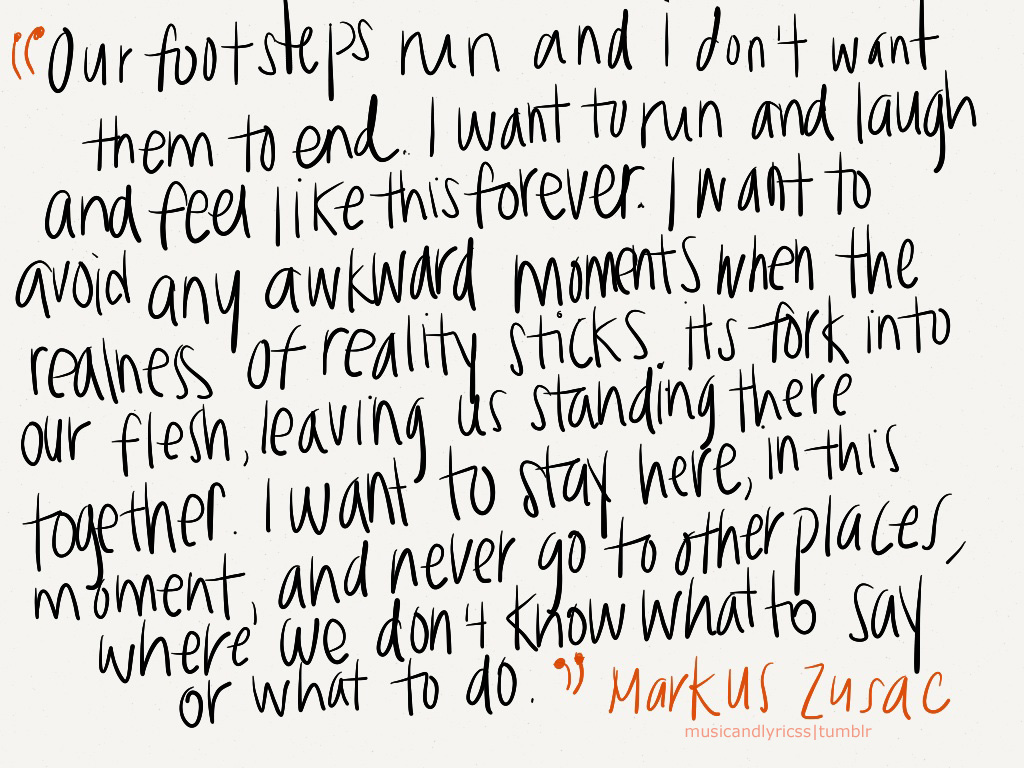 "Our footsteps run and i don't want
them to end. I want to run and laugh
and feel like this forever. I want to
avoid any awkward moments when the
realness of reality sticks its fork into
our flesh, leaving us standing there
together. I want to stay here, in this
moment, and never go to other places,
where we don't know what to say
or what to do." Markus Zusac
musicandlyricss|tumblr